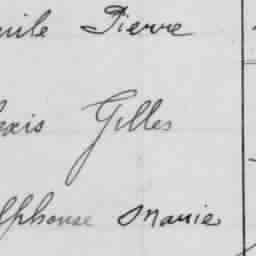 Pierre
exis Gilles
lphonse Marie